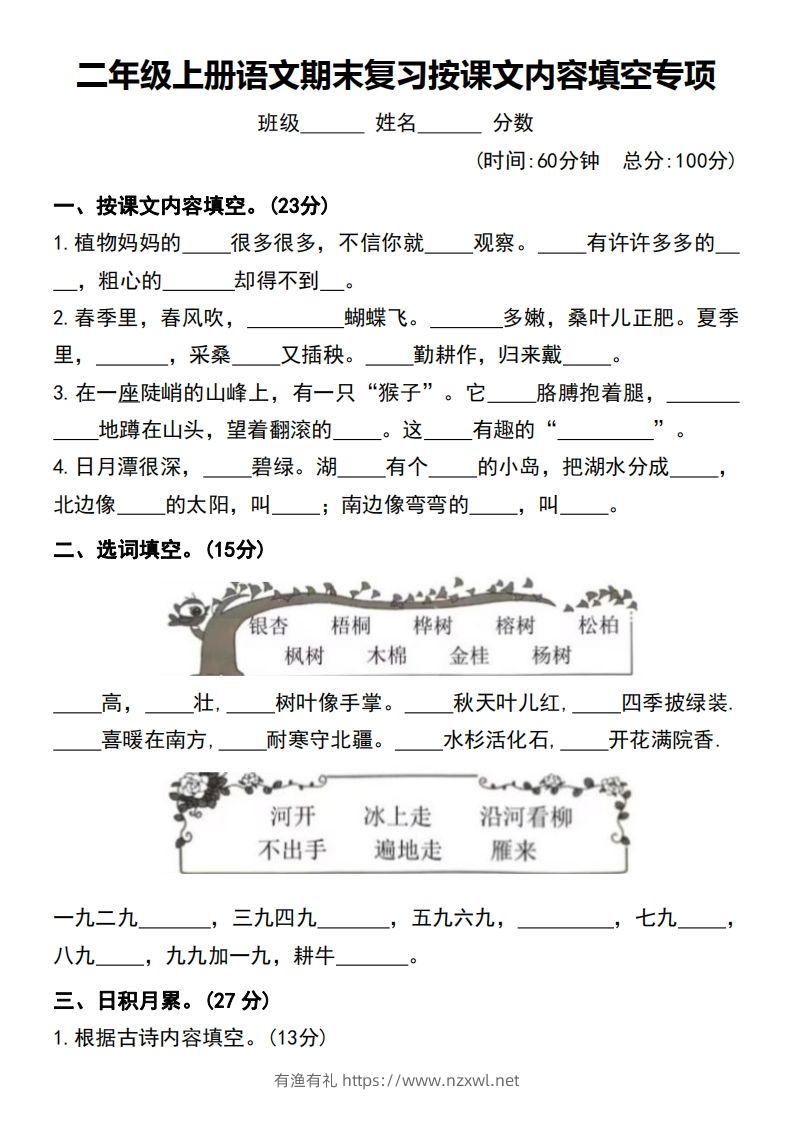 二年级上册语文期末复习按课文内容填空专项
班级______ 姓名______ 分数
(时间:60分钟 总分:100分)
一、按课文内容填空。(23分)
1.植物妈妈的____很多很多，不信你就____观察。____有许许多多的__
__，粗心的______却得不到__。
2.春季里，春风吹，________蝴蝶飞。______多嫩，桑叶儿正肥。夏季
里，______，采桑____又插秧。____勤耕作，归来戴____。
3.在一座陡峭的山峰上，有一只“猴子”。它____胳膊抱着腿，______
____地蹲在山头，望着翻滚的____。这____有趣的“________”。
4.日月潭很深，____碧绿。湖____有个____的小岛，把湖水分成____，
北边像____的太阳，叫____；南边像弯弯的____，叫____。
二、选词填空。(15分)
银杏 梧桐 桦树 榕树 松柏
枫树 木棉 金桂 杨树
____高，____壮,____树叶像手掌。____秋天叶儿红,____四季披绿装.
____喜暖在南方,____耐寒守北疆。____水杉活化石,____开花满院香.
河开 冰上走 沿河看柳
不出手 遍地走 雁来
一九二九______，三九四九______，五九六九，________，七九____，
八九____，九九加一九，耕牛______。
三、日积月累。(27 分)
1.根据古诗内容填空。(13分)
有渔有礼 https://www.nzxwl.net